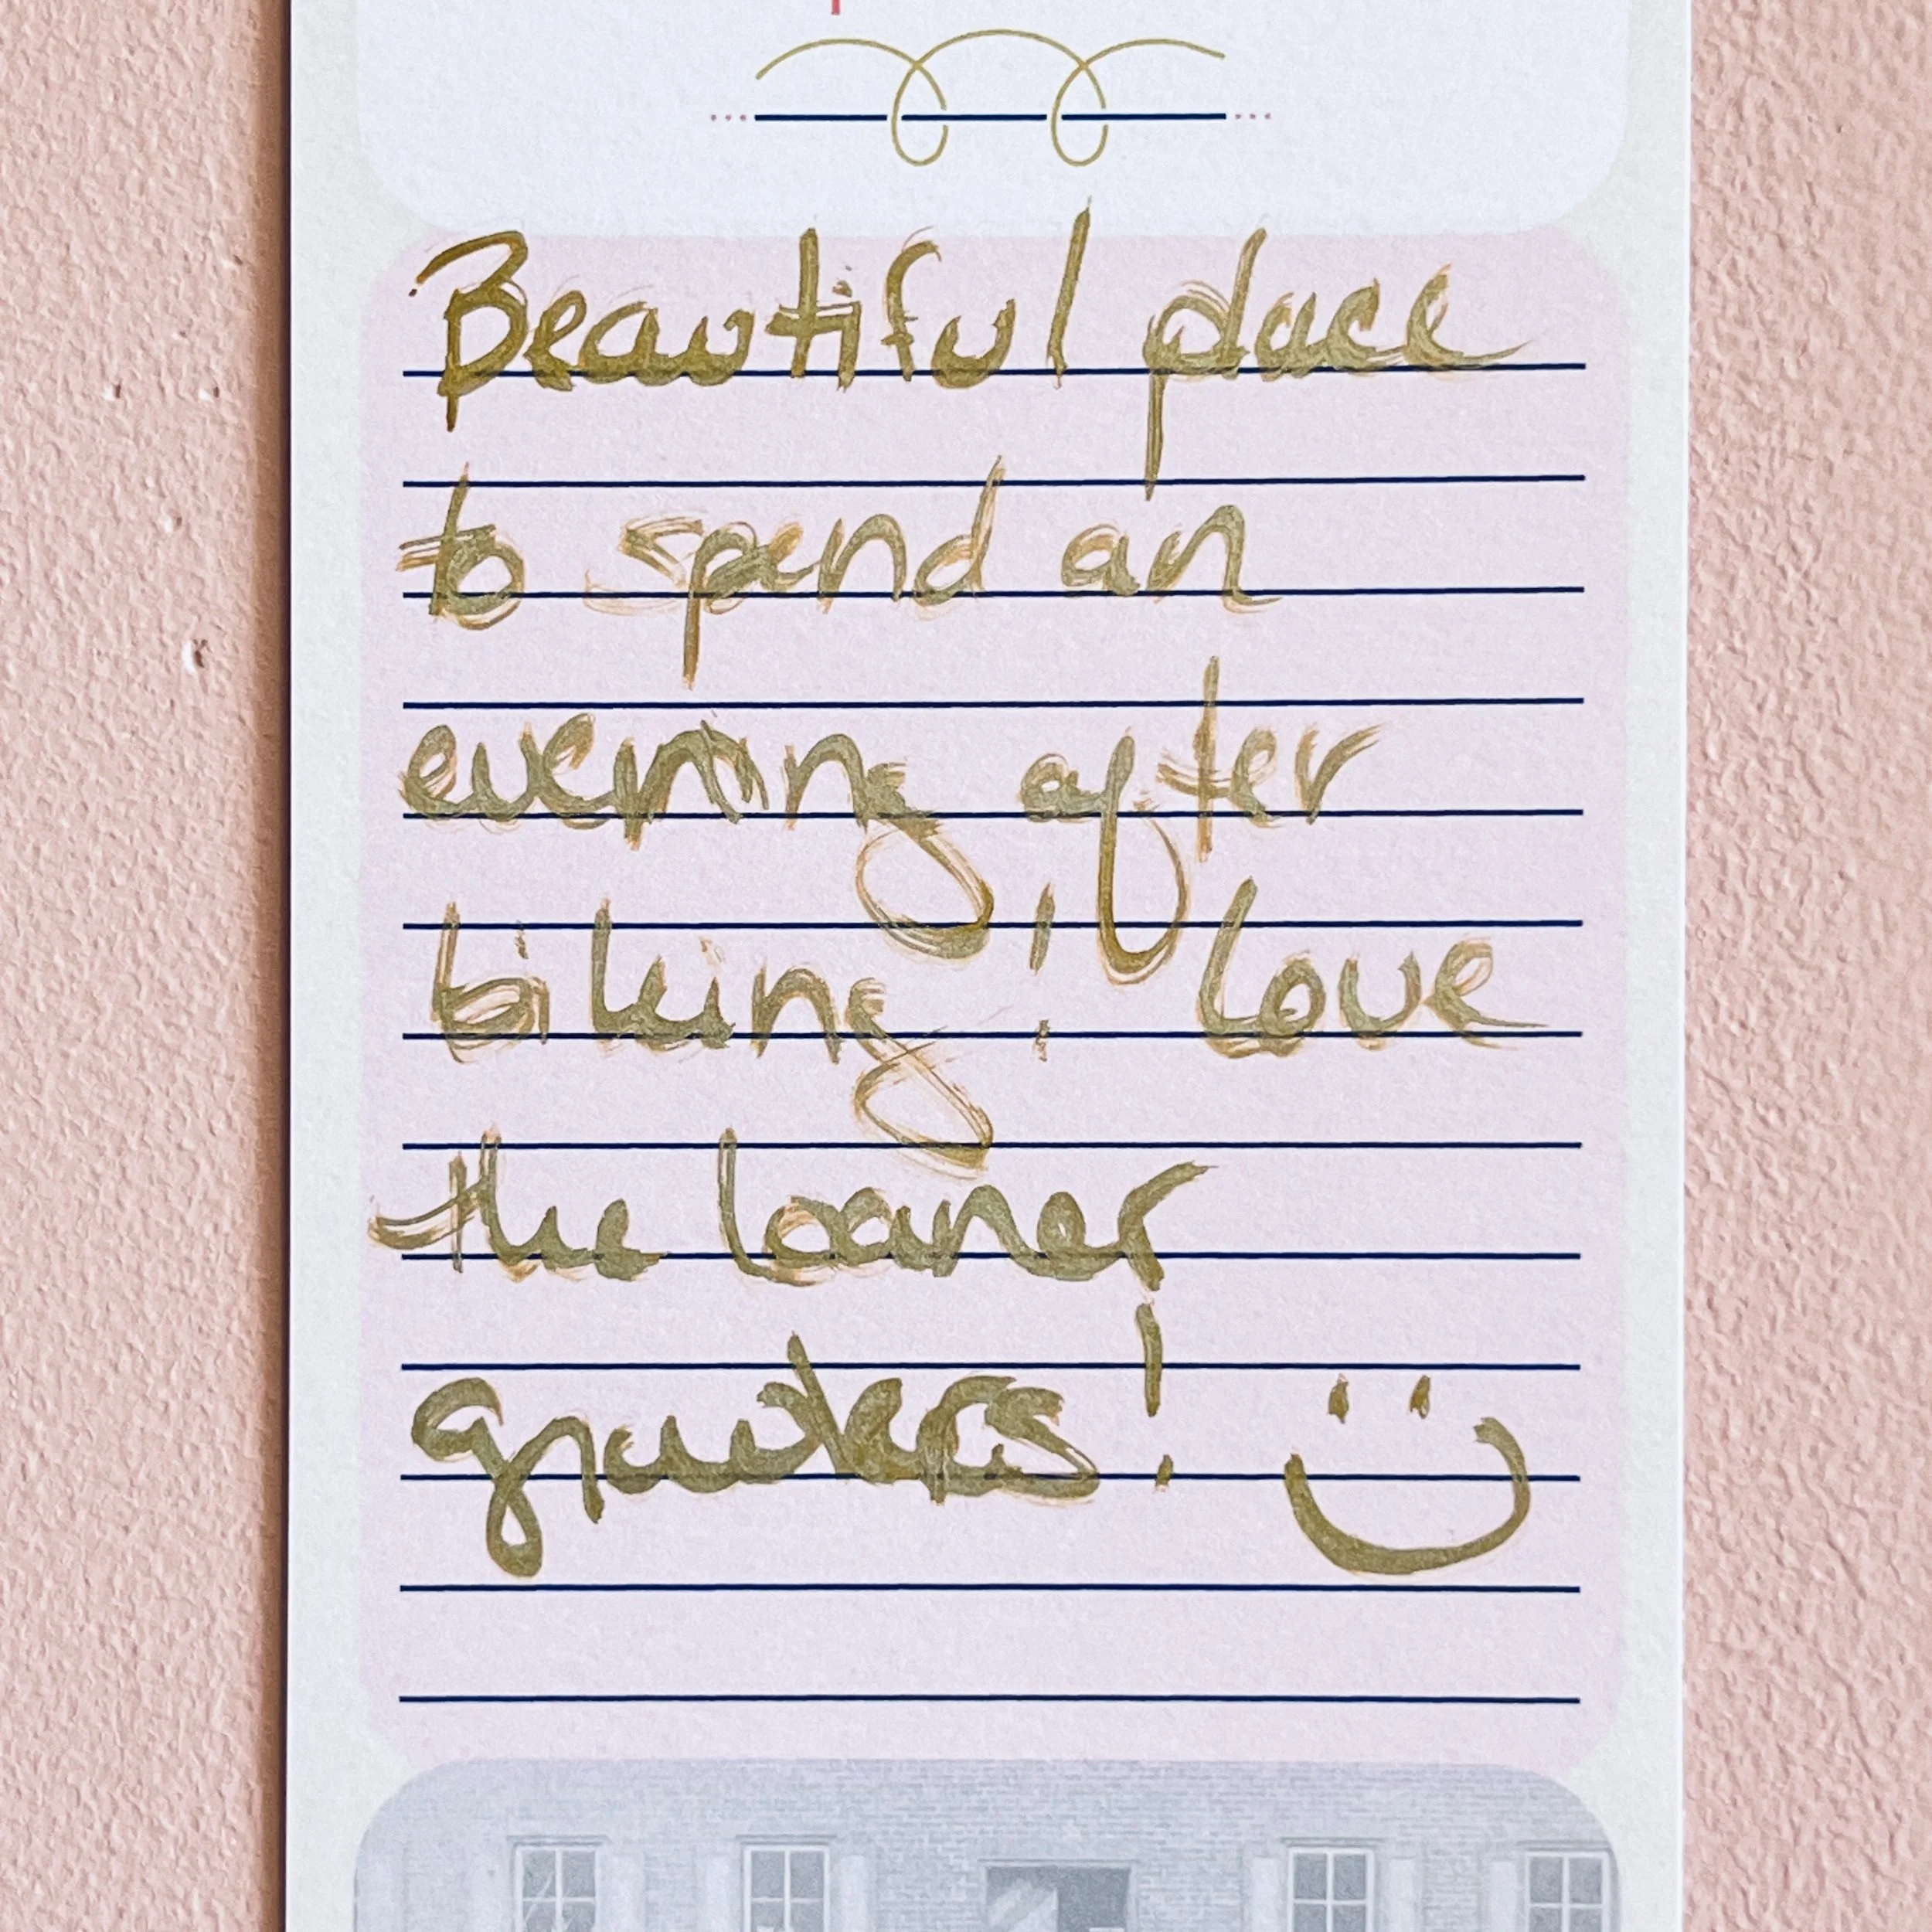 Beautiful place
to spend an
evening after
biking! Love
the loaner
! :)